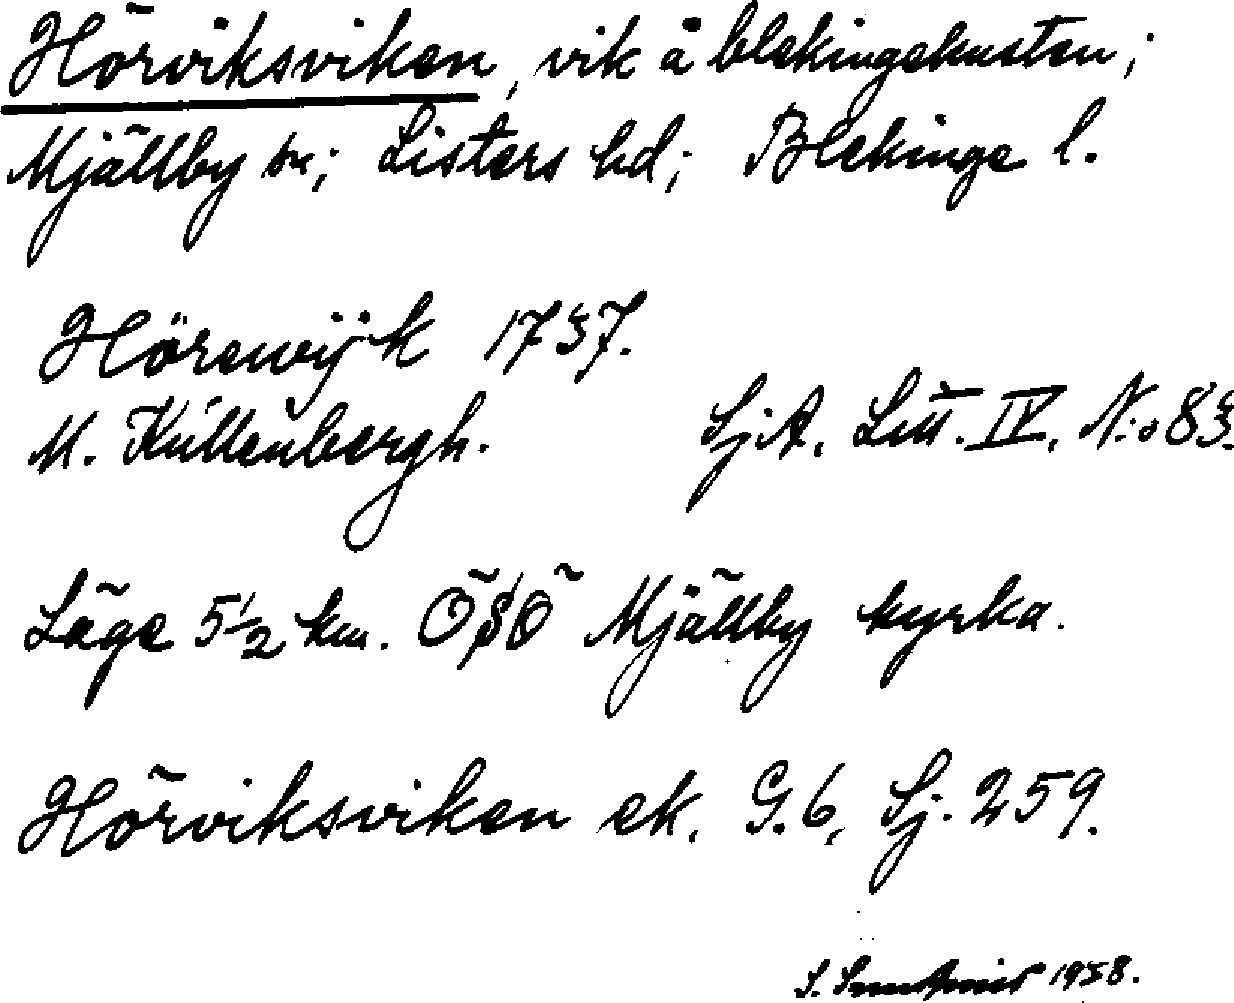 Hörviksviken, vik å blekingekusten;
Mjällby sn; Listers hd; Blekinge l.
Hörewijk 1737.
M. Küllenbergh. Sj.A. Litt. IV. N:o 83.
Läge 5 1/2 km. ÖSÖ Mjällby kyrka.
Hörviksviken ek. G.6, Sj. 259.
S. 1938.